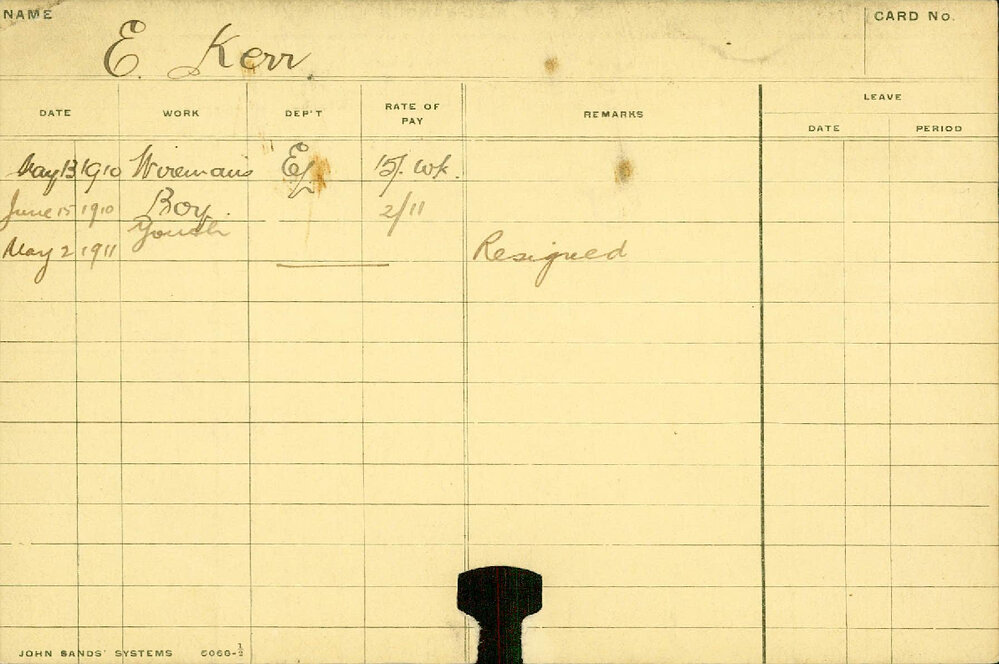 NAME
E. Kerr.
CARD No.
DATE WORK DEP'T RATE OF PAY REMARKS LEAVE
DATE PERIOD
May 13 1910 Wireman's 15/. wk.
June 15 1910 Boy 2/11
Youth
May 2 1911 Resigned
JOHN SANDS' SYSTEMS 5066-½